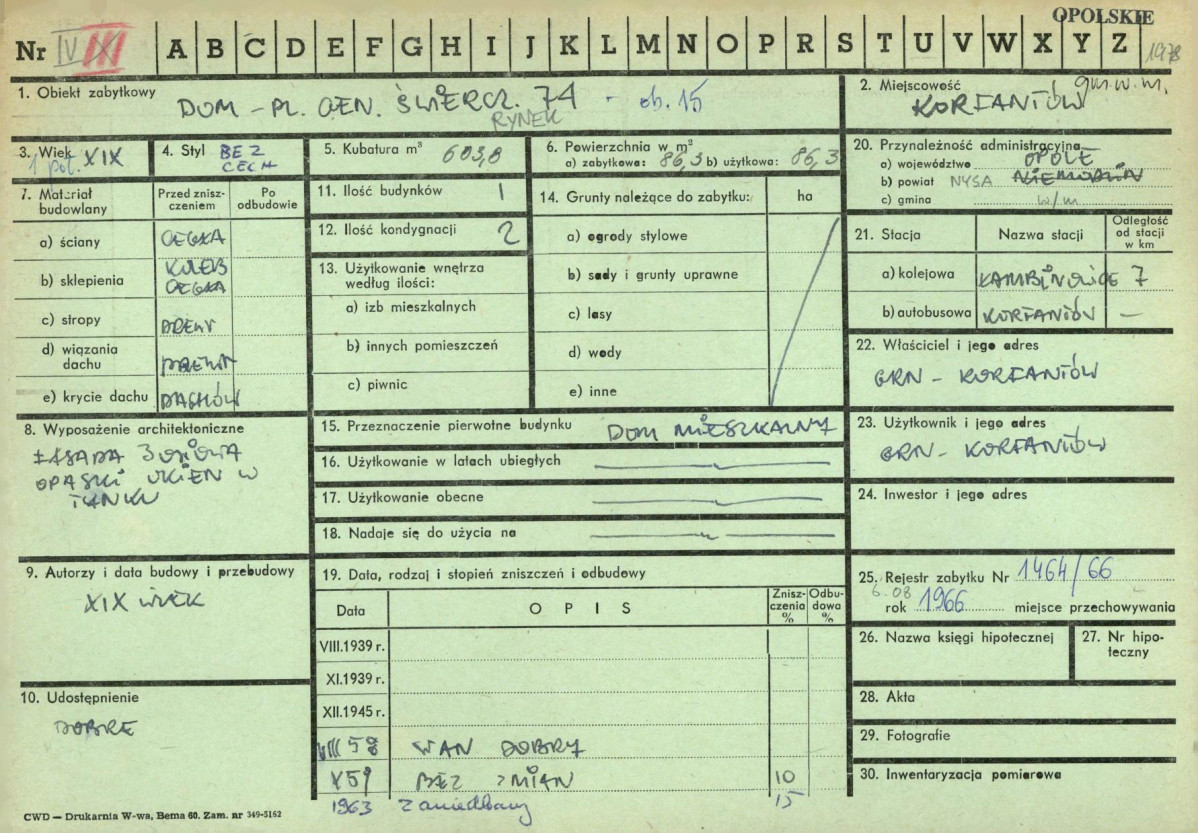 OPOLSKIE
Nr IV III A B C D E F G H I J K L M N O P R S T U V W X Y Z 1978
1. Obiekt zabytkowy DOM - PL. GEN. ŚWIERCZ. 74 - ob. 15
RYNEK
2. Miejscowość gm.w.m.
KORFANTÓW
3. Wiek XIX
1 poł.
4. Styl BEZ
CECH
5. Kubatura m³ 603,8
6. Powierzchnia w m²
a) zabytkowa: 86,3 b) użytkowa: 86,3
20. Przynależność administracyjna
a) województwo OPOLE
b) powiat NYSA NIEMODLIN
c) gmina w/m
7. Materiał budowlany
Przed zniszczeniem
Po odbudowie
a) ściany CEGŁA
b) sklepienia KOLEB
CEGŁA
c) stropy DREWN
d) wiązania dachu DREWN
e) krycie dachu DACHÓW
11. Ilość budynków 1
12. Ilość kondygnacji 2
13. Użytkowanie wnętrza
według ilości:
a) izb mieszkalnych
b) innych pomieszczeń
c) piwnic
14. Grunty należące do zabytku: ha
a) ogrody stylowe
b) sady i grunty uprawne
c) lasy
d) wody
e) inne
21. Stacja Nazwa stacji Odległość
od stacji
w km
a) kolejowa ŁAMBINOWICE 7
b) autobusowa KORFANTÓW —
22. Właściciel i jego adres
GRN - KORFANTÓW
8. Wyposażenie architektoniczne
FASADA 3 OSIOWA
OPASKI OKIEN W
TYNKU
15. Przeznaczenie pierwotne budynku DOM MIESZKALNY
16. Użytkowanie w latach ubiegłych
17. Użytkowanie obecne
18. Nadaje się do użycia na
23. Użytkownik i jego adres
GRN - KORFANTÓW
24. Inwestor i jego adres
9. Autorzy i data budowy i przebudowy
XIX WIEK
19. Data, rodzaj i stopień zniszczeń i odbudowy
Data OPIS Zniszczenia % Odbudowa %
VIII.1939 r.
XI.1939 r.
XII.1945 r.
VIII 58 STAN DOBRY
X 59 BEZ ZMIAN 10
1963 Zaniedbany 15
25. Rejestr zabytku Nr 1464/66
6.08
rok 1966 miejsce przechowywania
26. Nazwa księgi hipotecznej
27. Nr hipoteczny
10. Udostępnienie
DOBRE
28. Akta
29. Fotografie
30. Inwentaryzacja pomiarowa
CWD — Drukarnia W-wa, Bema 60. Zam. nr 349-5162